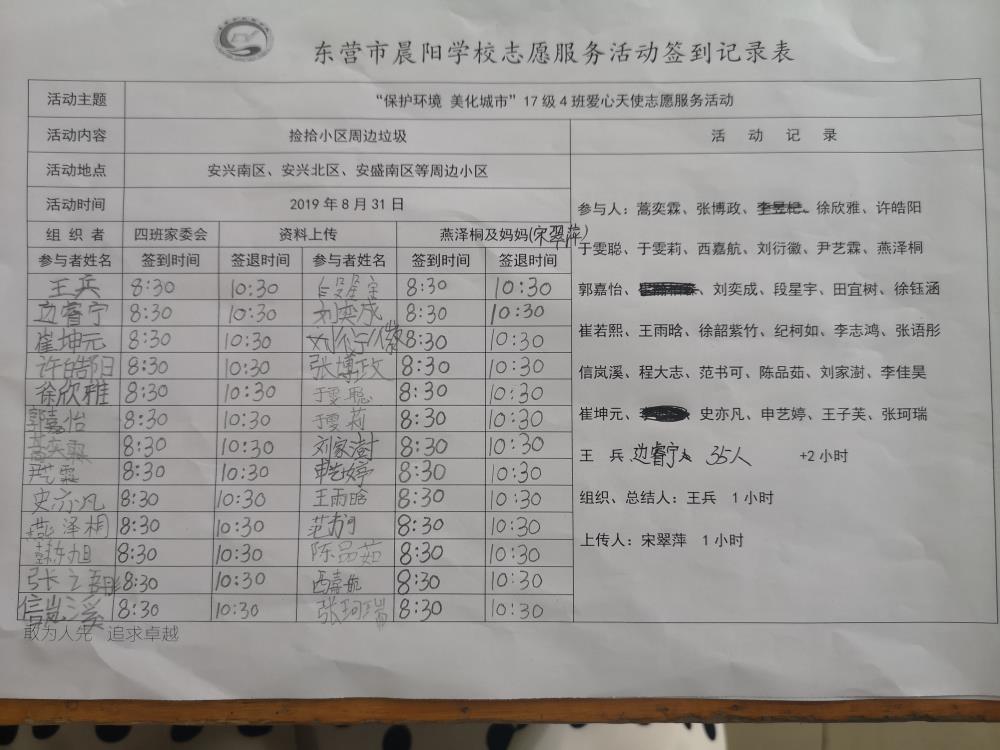 东营市晨阳学校志愿服务活动签到记录表
活动主题 “保护环境 美化城市”17级4班爱心天使志愿服务活动
活动内容 捡拾小区周边垃圾 活动记录
活动地点 安兴南区、安兴北区、安盛南区等周边小区
活动时间 2019年8月31日
组织者 四班家委会 资料上传 燕泽桐及妈妈(宋翠萍)
参与者姓名 签到时间 签退时间 参与者姓名 签到时间 签退时间
王兵 8:30 10:30 8:30 10:30
边睿宁 8:30 10:30 刘奕成 8:30 10:30
崔坤元 8:30 10:30 刘衍徽 8:30 10:30
许皓阳 8:30 10:30 张博政 8:30 10:30
徐欣雅 8:30 10:30 于雯聪 8:30 10:30
郭嘉怡 8:30 10:30 于雯莉 8:30 10:30
蒿奕霖 8:30 10:30 刘家澍 8:30 10:30
尹艺霖 8:30 10:30 申艺婷 8:30 10:30
史亦凡 8:30 10:30 王雨晗 8:30 10:30
燕泽桐 8:30 10:30 范书可 8:30 10:30
旭 8:30 10:30 陈品茹 8:30 10:30
张语彤 8:30 10:30 西嘉航 8:30 10:30
信岚溪 8:30 10:30 张珂瑞 8:30 10:30
敢为人先 追求卓越
参与人：蒿奕霖、张博政、李昱杞、徐欣雅、许皓阳
于雯聪、于雯莉、西嘉航、刘衍徽、尹艺霖、燕泽桐
郭嘉怡、、刘奕成、段星宇、田宜树、徐钰涵
崔若熙、王雨晗、徐韶紫竹、纪柯如、李志鸿、张语彤
信岚溪、程大志、范书可、陈品茹、刘家澍、李佳昊
崔坤元、史亦凡、申艺婷、王子芙、张珂瑞
王兵 边睿宁 35人 +2小时
组织、总结人：王兵 1小时
上传人：宋翠萍 1小时